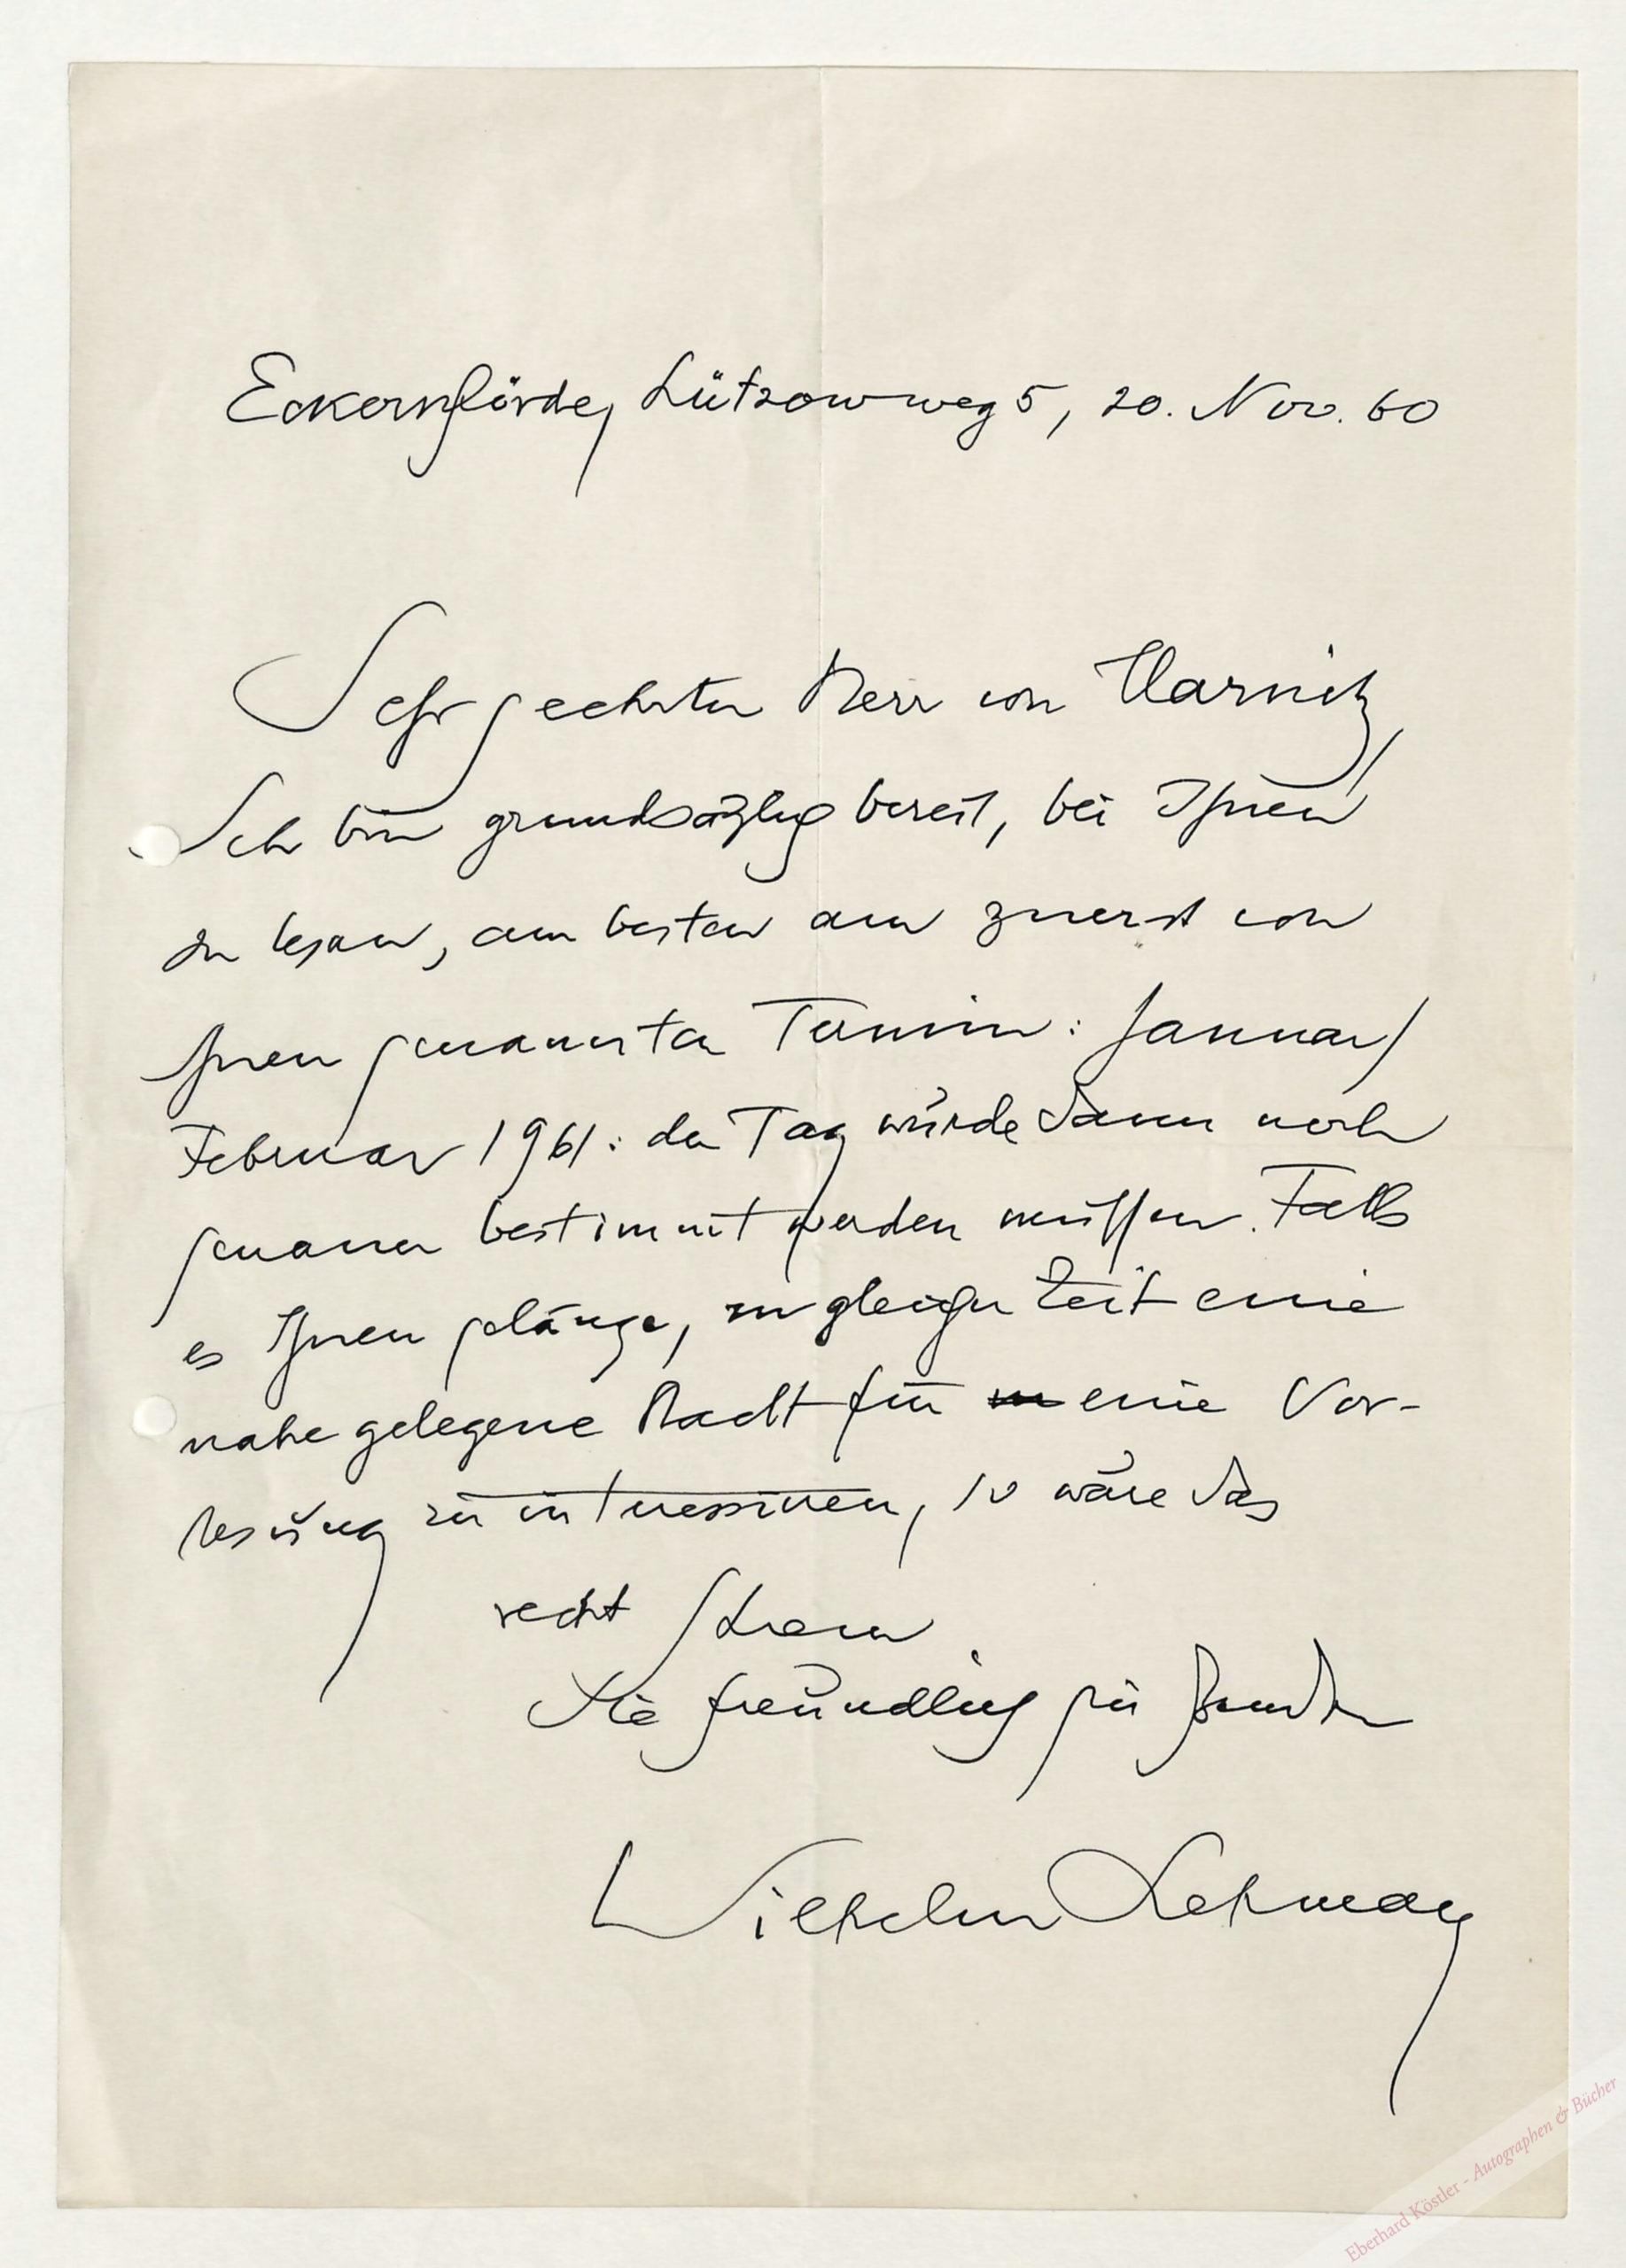 Eckernförde, Lützowweg 5, 20. Nov. 60
Sehr geehrter Herr von
Ich bin grundsätzlich bereit, bei Ihnen
zu lesen, am besten am zuerst von
Ihnen genannten Termin: Januar/
Februar 1961: der Tag würde dann noch
genauer bestimmt werden müssen. Falls
es Ihnen gelänge, zu gleicher Zeit eine
nahe gelegene Stadt für eine Vor-
lesung zu interessieren, so wäre das
recht schön.
Sie freundlich grüßend
Wilhelm Lehmann
Eberhard Köstler - Autographen & Bücher